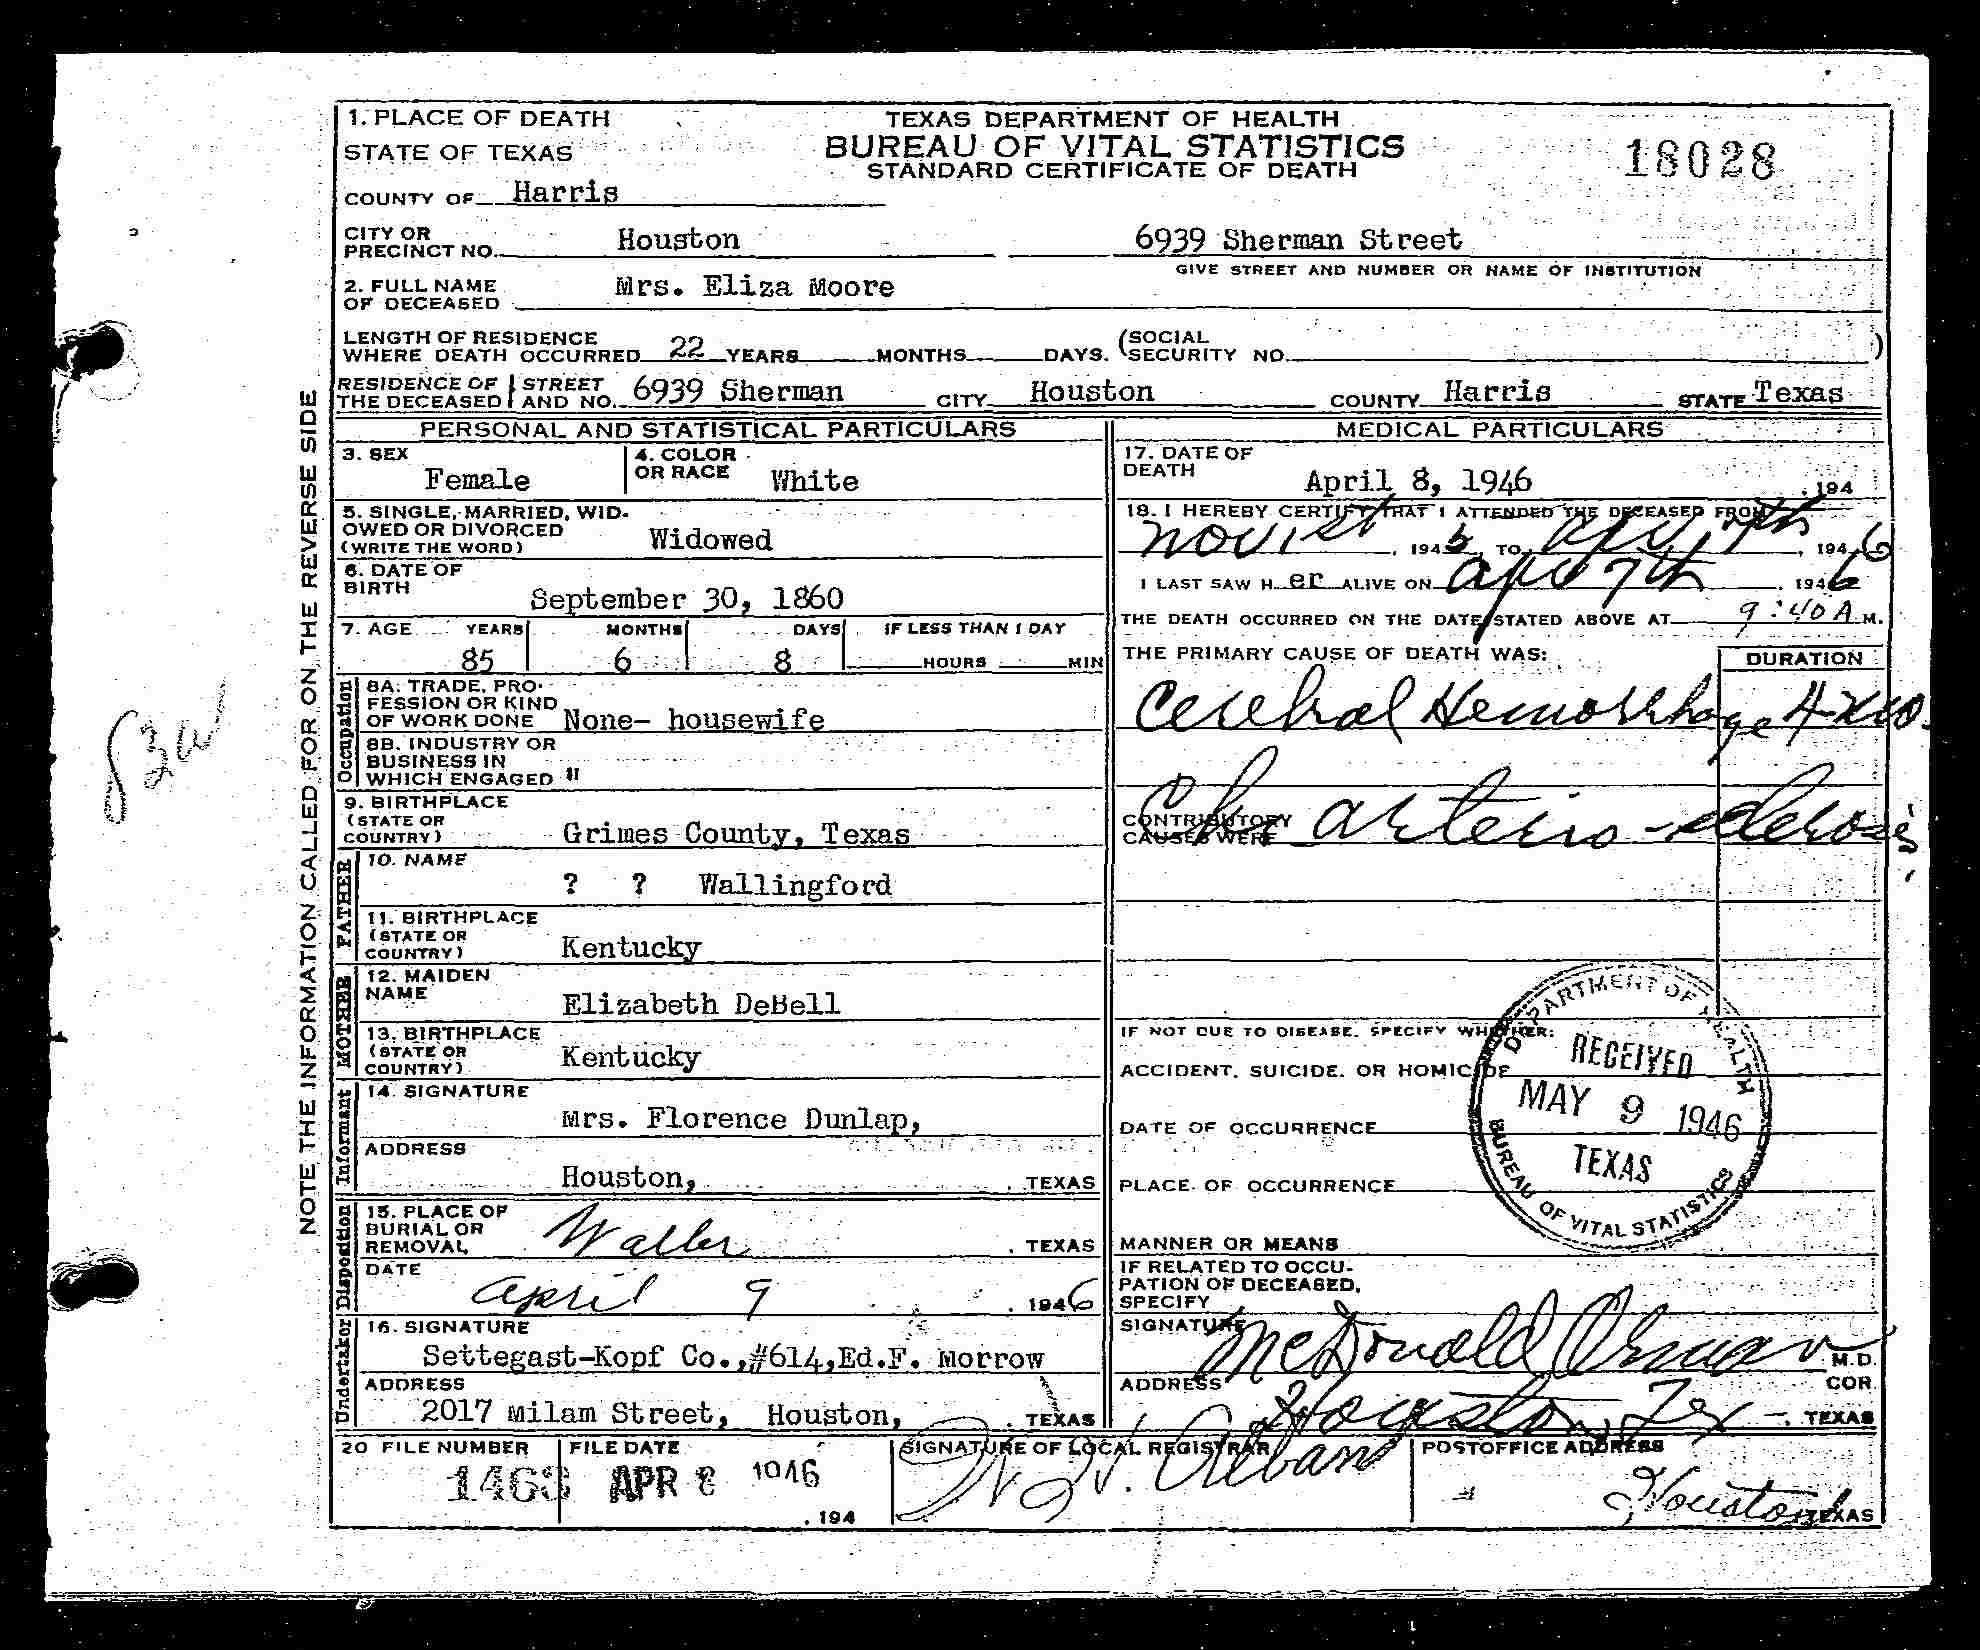 1. PLACE OF DEATH
STATE OF TEXAS
COUNTY OF Harris
TEXAS DEPARTMENT OF HEALTH
BUREAU OF VITAL STATISTICS
STANDARD CERTIFICATE OF DEATH
18028
CITY OR PRECINCT NO. Houston 6939 Sherman Street
GIVE STREET AND NUMBER OR NAME OF INSTITUTION
2. FULL NAME OF DECEASED Mrs. Eliza Moore
LENGTH OF RESIDENCE WHERE DEATH OCCURRED 22 YEARS MONTHS DAYS. (SOCIAL SECURITY NO. )
RESIDENCE OF THE DECEASED STREET AND NO. 6939 Sherman CITY Houston COUNTY Harris STATE Texas
NOTE THE INFORMATION CALLED FOR ON THE REVERSE SIDE
PERSONAL AND STATISTICAL PARTICULARS
3. SEX Female
4. COLOR OR RACE White
5. SINGLE, MARRIED, WIDOWED OR DIVORCED (WRITE THE WORD) Widowed
6. DATE OF BIRTH September 30, 1860
7. AGE YEARS MONTHS DAYS IF LESS THAN 1 DAY
85 6 8 HOURS MIN
Occupation
8A. TRADE, PROFESSION OR KIND OF WORK DONE None- housewife
8B. INDUSTRY OR BUSINESS IN WHICH ENGAGED "
9. BIRTHPLACE (STATE OR COUNTRY) Grimes County, Texas
FATHER
10. NAME ? ? Wallingford
11. BIRTHPLACE (STATE OR COUNTRY) Kentucky
MOTHER
12. MAIDEN NAME Elizabeth DeBell
13. BIRTHPLACE (STATE OR COUNTRY) Kentucky
Informant
14. SIGNATURE Mrs. Florence Dunlap,
ADDRESS Houston, , TEXAS
Disposition
15. PLACE OF BURIAL OR REMOVAL Waller , TEXAS
DATE April 9 , 1946
Undertaker
16. SIGNATURE Settegast-Kopf Co.,#614,Ed.F. Morrow
ADDRESS 2017 Milam Street, Houston, , TEXAS
MEDICAL PARTICULARS
17. DATE OF DEATH April 8, 1946 , 194
18. I HEREBY CERTIFY THAT I ATTENDED THE DECEASED FROM
Nov 1st , 1945 TO Apr 7th , 1946
I LAST SAW H er ALIVE ON Apr 7th , 1946
THE DEATH OCCURRED ON THE DATE STATED ABOVE AT 9:40 A M.
THE PRIMARY CAUSE OF DEATH WAS: DURATION
Cerebral Hemorrhage 4
CONTRIBUTORY CAUSES WERE Chr arterio-sclerosis
IF NOT DUE TO DISEASE, SPECIFY WHETHER:
ACCIDENT, SUICIDE, OR HOMICIDE
DATE OF OCCURRENCE
PLACE OF OCCURRENCE
MANNER OR MEANS
DEPARTMENT OF HEALTH
RECEIVED
MAY 9 1946
TEXAS
BUREAU OF VITAL STATISTICS
IF RELATED TO OCCUPATION OF DECEASED, SPECIFY
SIGNATURE McDonald Orman M.D.
COR.
ADDRESS Houston, Tex , TEXAS
20 FILE NUMBER 1463
FILE DATE APR 8 1946 , 194
SIGNATURE OF LOCAL REGISTRAR
POSTOFFICE ADDRESS Houston TEXAS